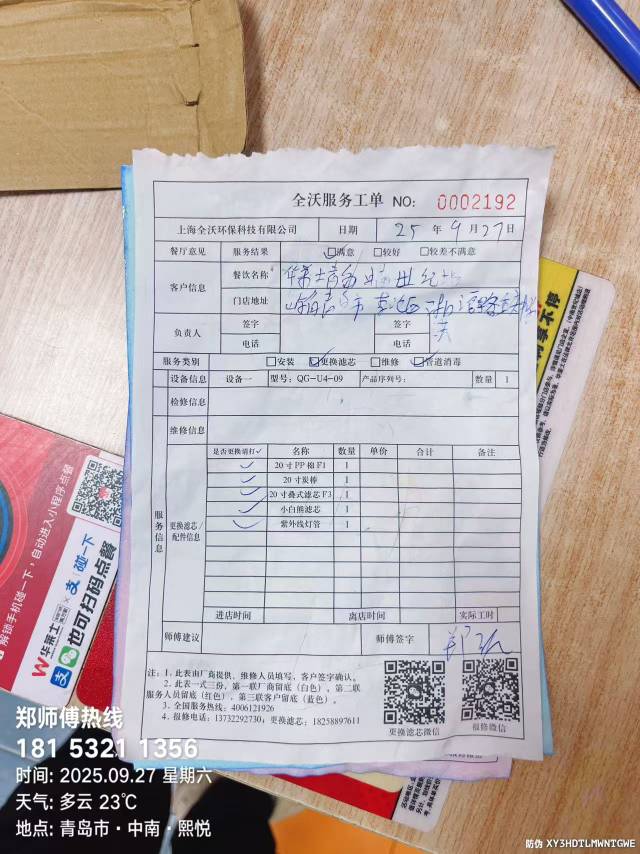 全沃服务工单 NO: 0002192
上海全沃环保科技有限公司 日期 25 年 9 月 27 日
餐厅意见 服务结果 ☑满意 □较好 □较差不满意
客户信息 餐饮名称 华莱士青岛
门店地址 青岛市
负责人 签字 签字
电话 电话
服务类别 □安装 ☑更换滤芯 □维修 ☑管道消毒
设备信息 设备一 型号: QG-U4-09 产品序列号: 数量 1
检修信息
维修信息
服务信息
更换滤芯/配件信息
是否更换请打✓ 名称 数量 单价 合计 备注
✓ 20寸PP棉F1 1
✓ 20寸炭棒 1
✓ 20寸叠式滤芯F3 1
✓ 小白熊滤芯 1
✓ 紫外线灯管 1
进店时间 离店时间 实际工时
师傅建议 师傅签字
注: 1. 此表由厂商提供, 维修人员填写, 客户签字确认。
2. 此表一式三份, 第一联厂商留底 (白色), 第二联
服务人员留底 (红色), 第三联客户留底 (蓝色)。
3. 全国服务热线: 4006121926
4. 报修电话: 13732292730; 更换滤芯: 18258897611
更换滤芯微信 报修微信
解锁手机碰一下, 自动进入小程序点餐
华莱士 × 支 碰一下
也可扫码点餐
郑师傅热线
181 5321 1356
时间: 2025.09.27 星期六
天气: 多云 23℃
地点: 青岛市·中南·熙悦
防伪 XY3HDTLMWNTGWE